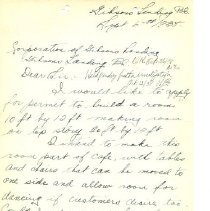 Gibsons Landing B.C.
Sept
Corporation of Gibsons Landing
Gibsons Landing B.C.
Dear Sir:-
I would like to apply
for permit to build a room
10 ft by 12 ft making room
on top story 20 ft by 10 ft
I wished to make this
room part of cafe, with tables
and chairs that can be moved to
one side and allow room for
dancing if customers desire to.